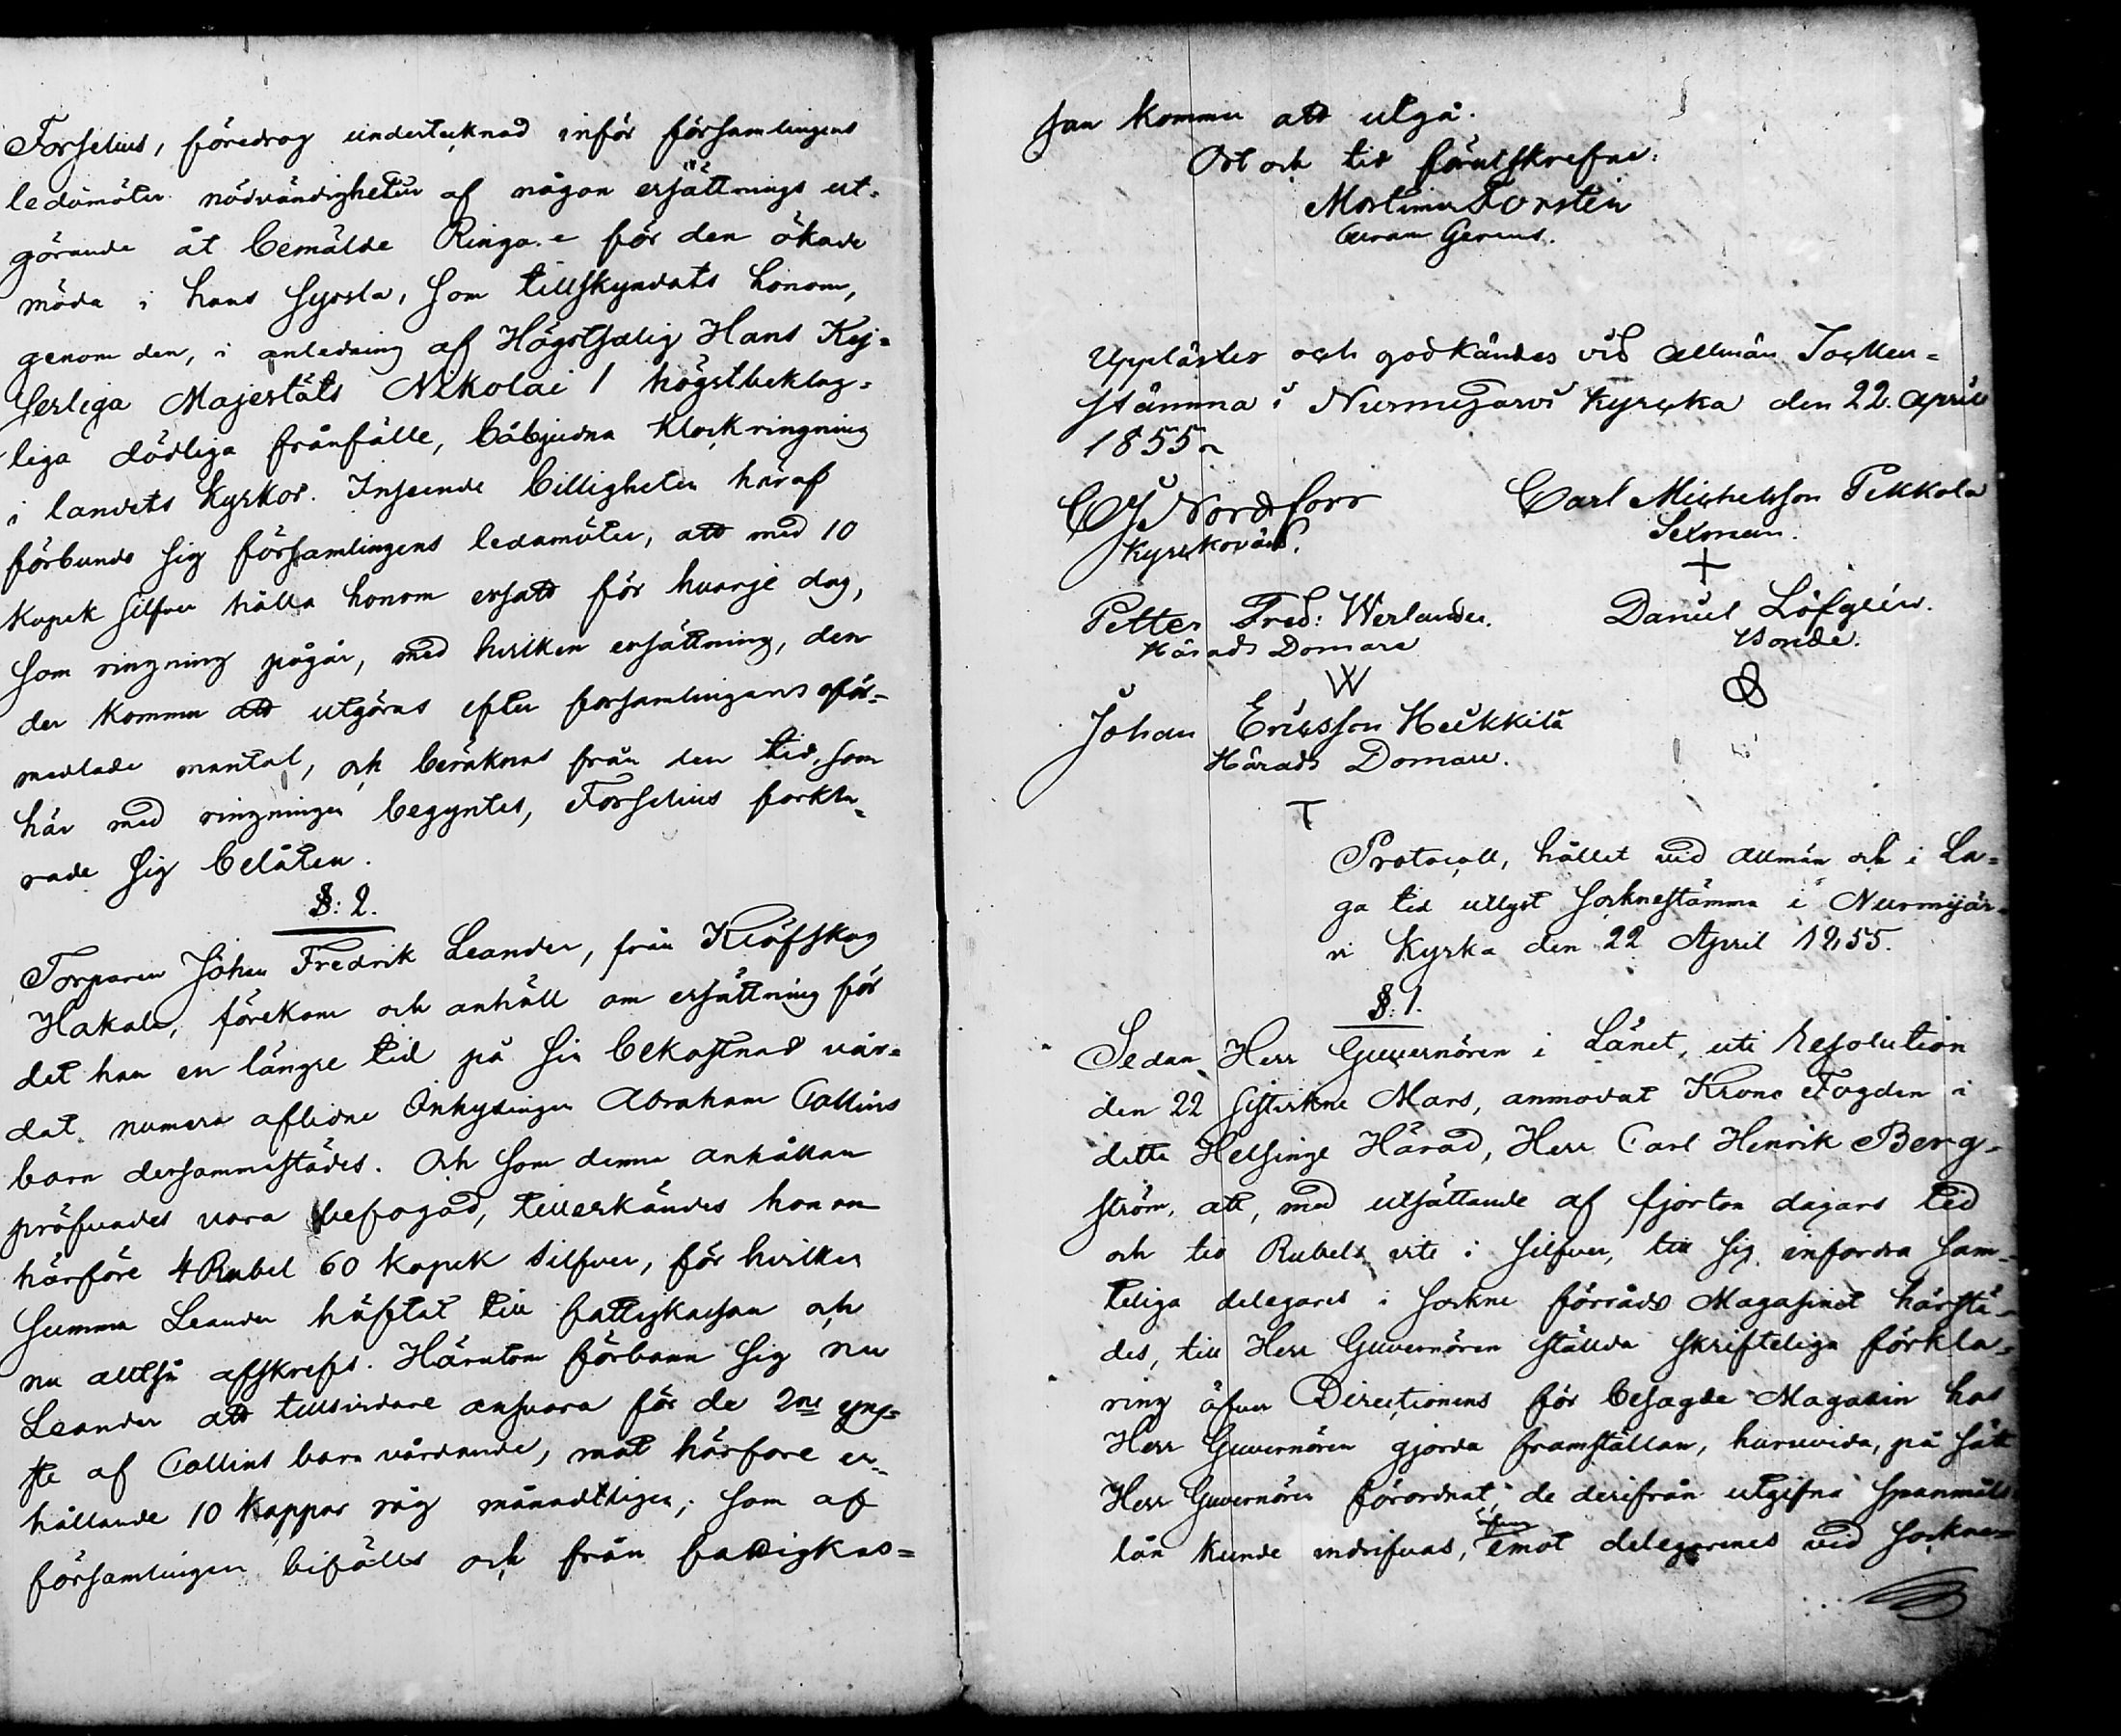 Forselius, föredrog undertecknad inför församlingens
ledamöter nödvändigheten af någon ersättnings ut-
görande åt bemälde Ringare för den ökade
möda i hans syssla, som tillskyndats honom,
genom den, i anledning af Högstsalig Hans Kej-
serliga Majestäts Nikolai I högstbeklag-
liga dödliga frånfälle, båbjudna klockringning
i landets kyrkor. Inseende billigheten häraf
förbundo sig församlingens ledamöter, att med 10
kopek silfver hålla honom ersatt för hvarje dag,
som ringning pågår, med hvilken ersättning, den-
der kommer att utgöras efter församlingens oför-
medlade mantal, och beräknas från den tid, som
här med ringningen begyntes, Forselius förkla-
rade sig belåten.
§: 2.
Torparen Johan Fredrik Leander, från Klöfskog
Hakala, förekom och anhöll om ersättning för
det han en längre tid på sin bekostnad vår-
dat numera aflidne Inhysingen Abraham Collins
barn dersammastädes. Och som denne anhållan
pröfvades vara befogad, tillerkändes honom
härföre 4 Rubel 60 kopek silfver, för hvilken
summa Leander häftat till fattigkassan och
nu alltså afskrefs. Härutom förbann sig nu
Leander att tillsvidare ansvara för de 2ne yng-
ste af Collins barn vårdande, mot härföre er-
hållande 10 kappar råg månadtligen, som af
församlingen bifölls och från fattigkas-
san kommer att utgå.
Ort och tid förutskrefne.
Mortimer Forstén
Curam Gerens.
Upplästes och godkändes vid allmän Socken-
stämma i Nurmijarvi kyrcka den 22. April
1855
CJ Nordfors
Kyrckovärd.
Carl Michelsson Pekkola
Sexman.
+
Petter Fred: Werlander.
Härads Domare
W
Daniel Löfgren.
Bonde.
Johan Ericsson Heikkilä
Härads Domare.
T
Protocoll, hållet vid allmän och i La-
ga tid utlyst socknestämma i Nurmijär-
vi Kyrka den 22 April 1855.
§: 1.
Sedan Herr Guvernören i Länet, uti Resolution
den 22 sistvikne Mars, anmodat Krono Fogden i
detta Helsinge Härad, Herr Carl Henrik Berg-
ström, att, med utsättande af fjorton dagars tid
och tio Rubels vite i silfver, till sig infordra sam-
teliga delegares i sockne förråds Magasinet härstä-
des, till Herr Guvernören ställda skrifteliga förkla-
ring öfver Directionens för besagde Magasin hos
Herr Guvernören gjorda framställan, huruvida, på sätt
Herr Guvernören förordnat, de derifrån utgifna spanmåls
lån kunde indrifvas, emot delegarenes vid sockne-